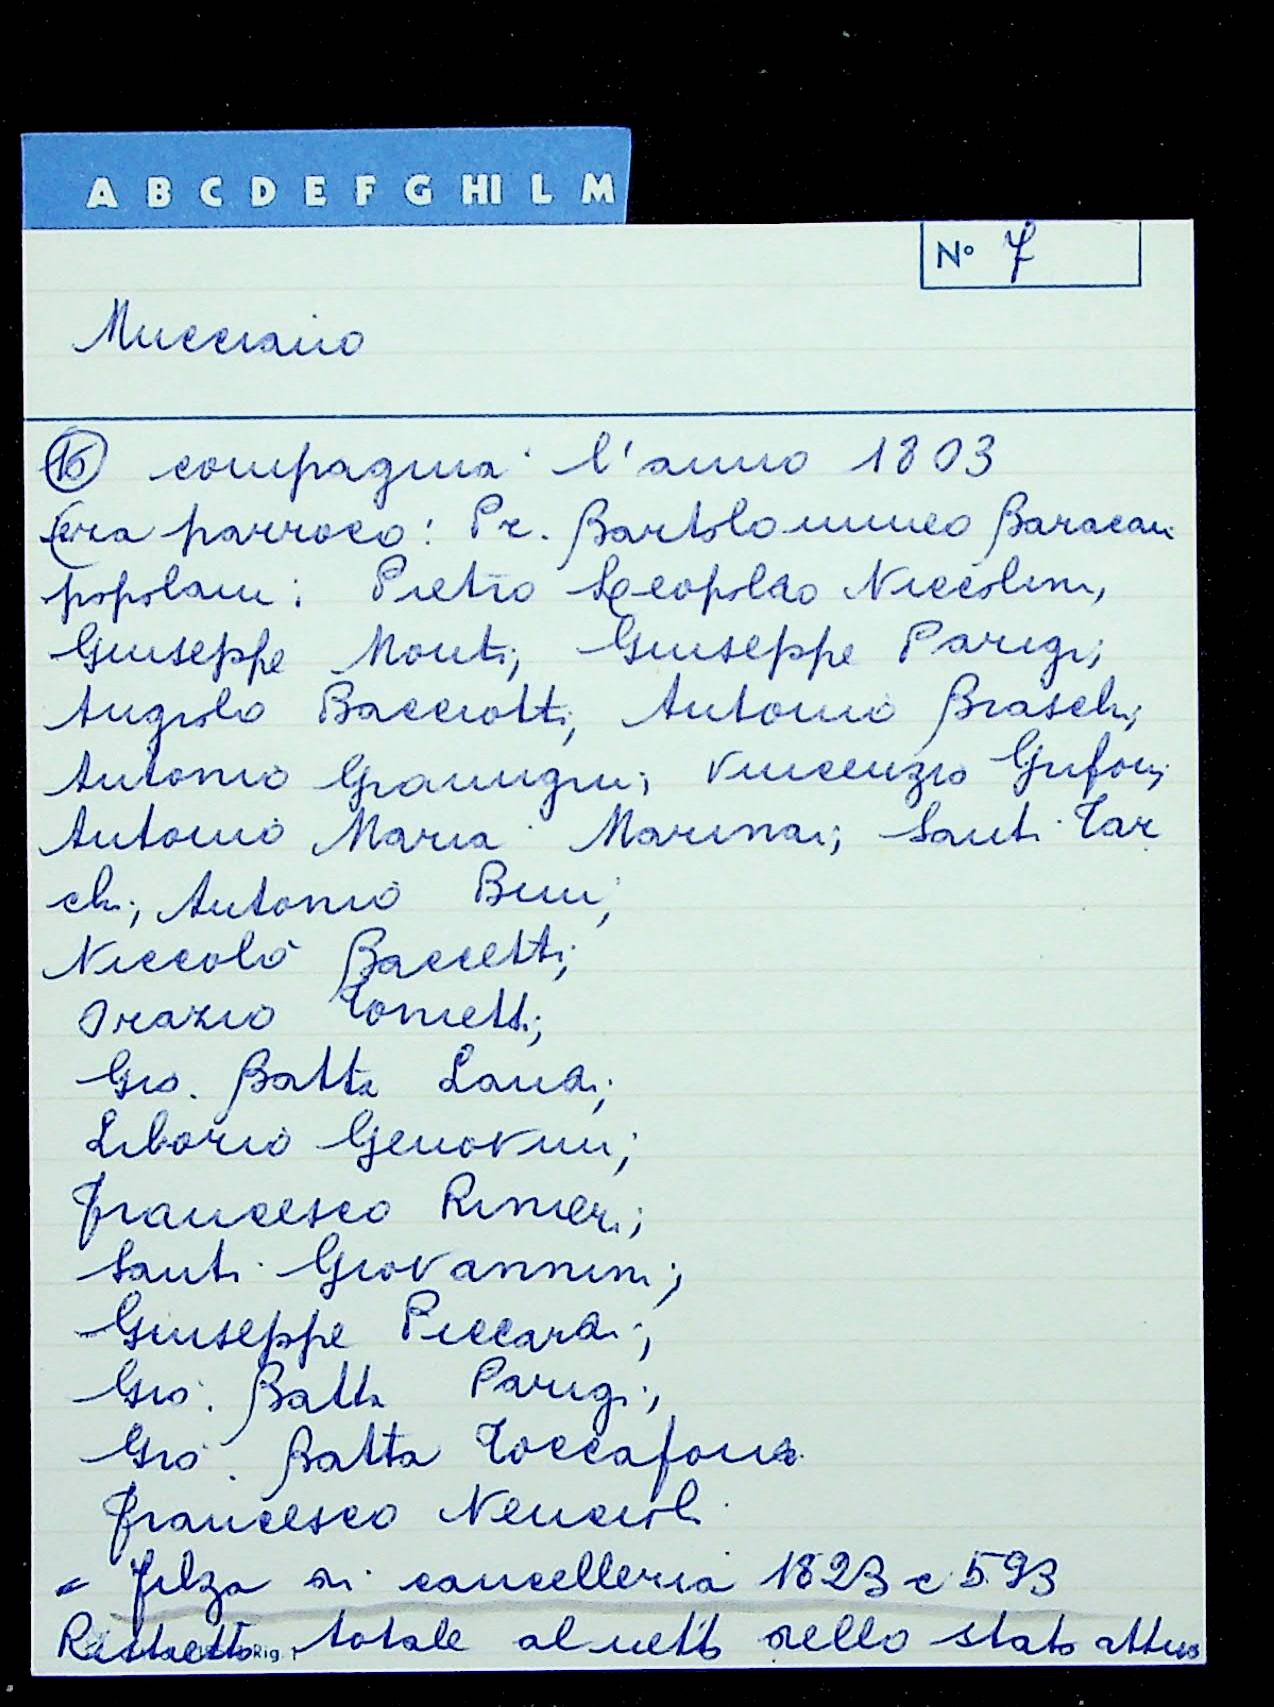 A B C D E F G HI L M
N° 7
Mucciano
15 compagnia l'anno 1803
(era parroco: Pr. Bartolommeo Baracani
popolani: Pietro Leopoldo Niccolini,
Giuseppe Monti; Giuseppe Parigi;
Angiolo Bacciotti; Antonio Braschi;
Antonio Gramigni; Vincenzio Grifoni;
Antonio Maria Marinai; Santi Tar
chi; Antonio Bini;
Niccolò Baccetti;
Orazio Tonietti;
Gio. Batta Landi;
Liborio Genovini;
Francesco Rinieri;
Santi Giovannini;
Giuseppe Piccardi;
Gio. Batta Parigi;
Gio. Batta Toccafondi
Francesco Nencioli
= Filza di cancelleria 1823 c 593
Ristretto totale al netto dello stato attivo
Rig. 1